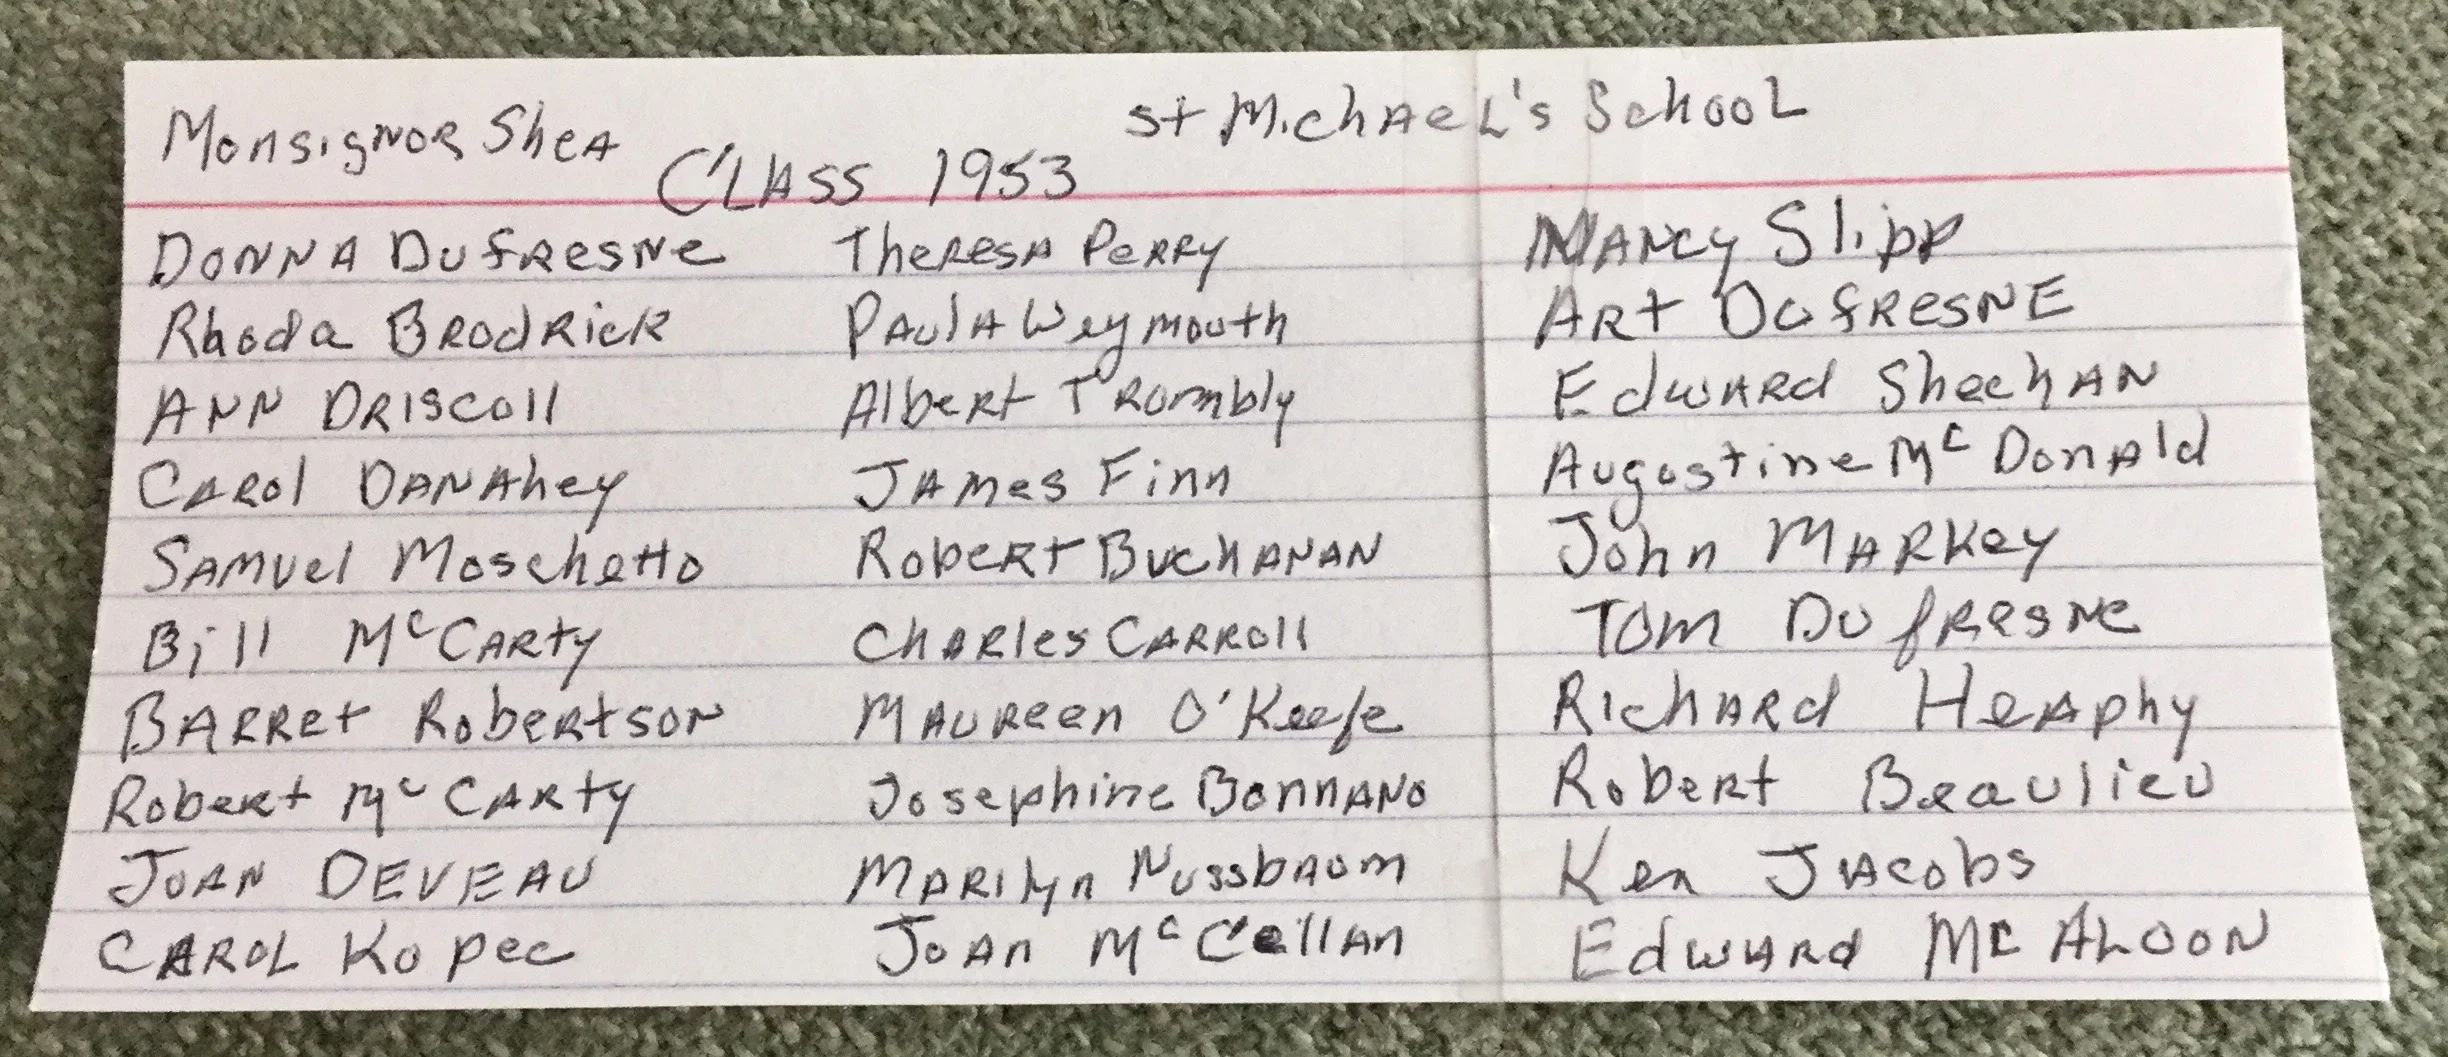 Monsignor Shea
St Michael's School
Class 1953
Donna Dufresne
Rhoda Brodrick
Ann Driscoll
Carol Danahey
Samuel Moschetto
Bill McCarty
Barret Robertson
Robert McCarty
Joan Deveau
Carol Kopec
Theresa Perry
Paula Weymouth
Albert Trombly
James Finn
Robert Buchanan
Charles Carroll
Maureen O'Keefe
Josephine Bonnano
Marilyn Nussbaum
Joan McCellan
Nancy Slipp
Art Dufresne
Edward Sheehan
Augustine McDonald
John Markey
Tom Dufresne
Richard Heaphy
Robert Beaulieu
Ken Jacobs
Edward McAloon